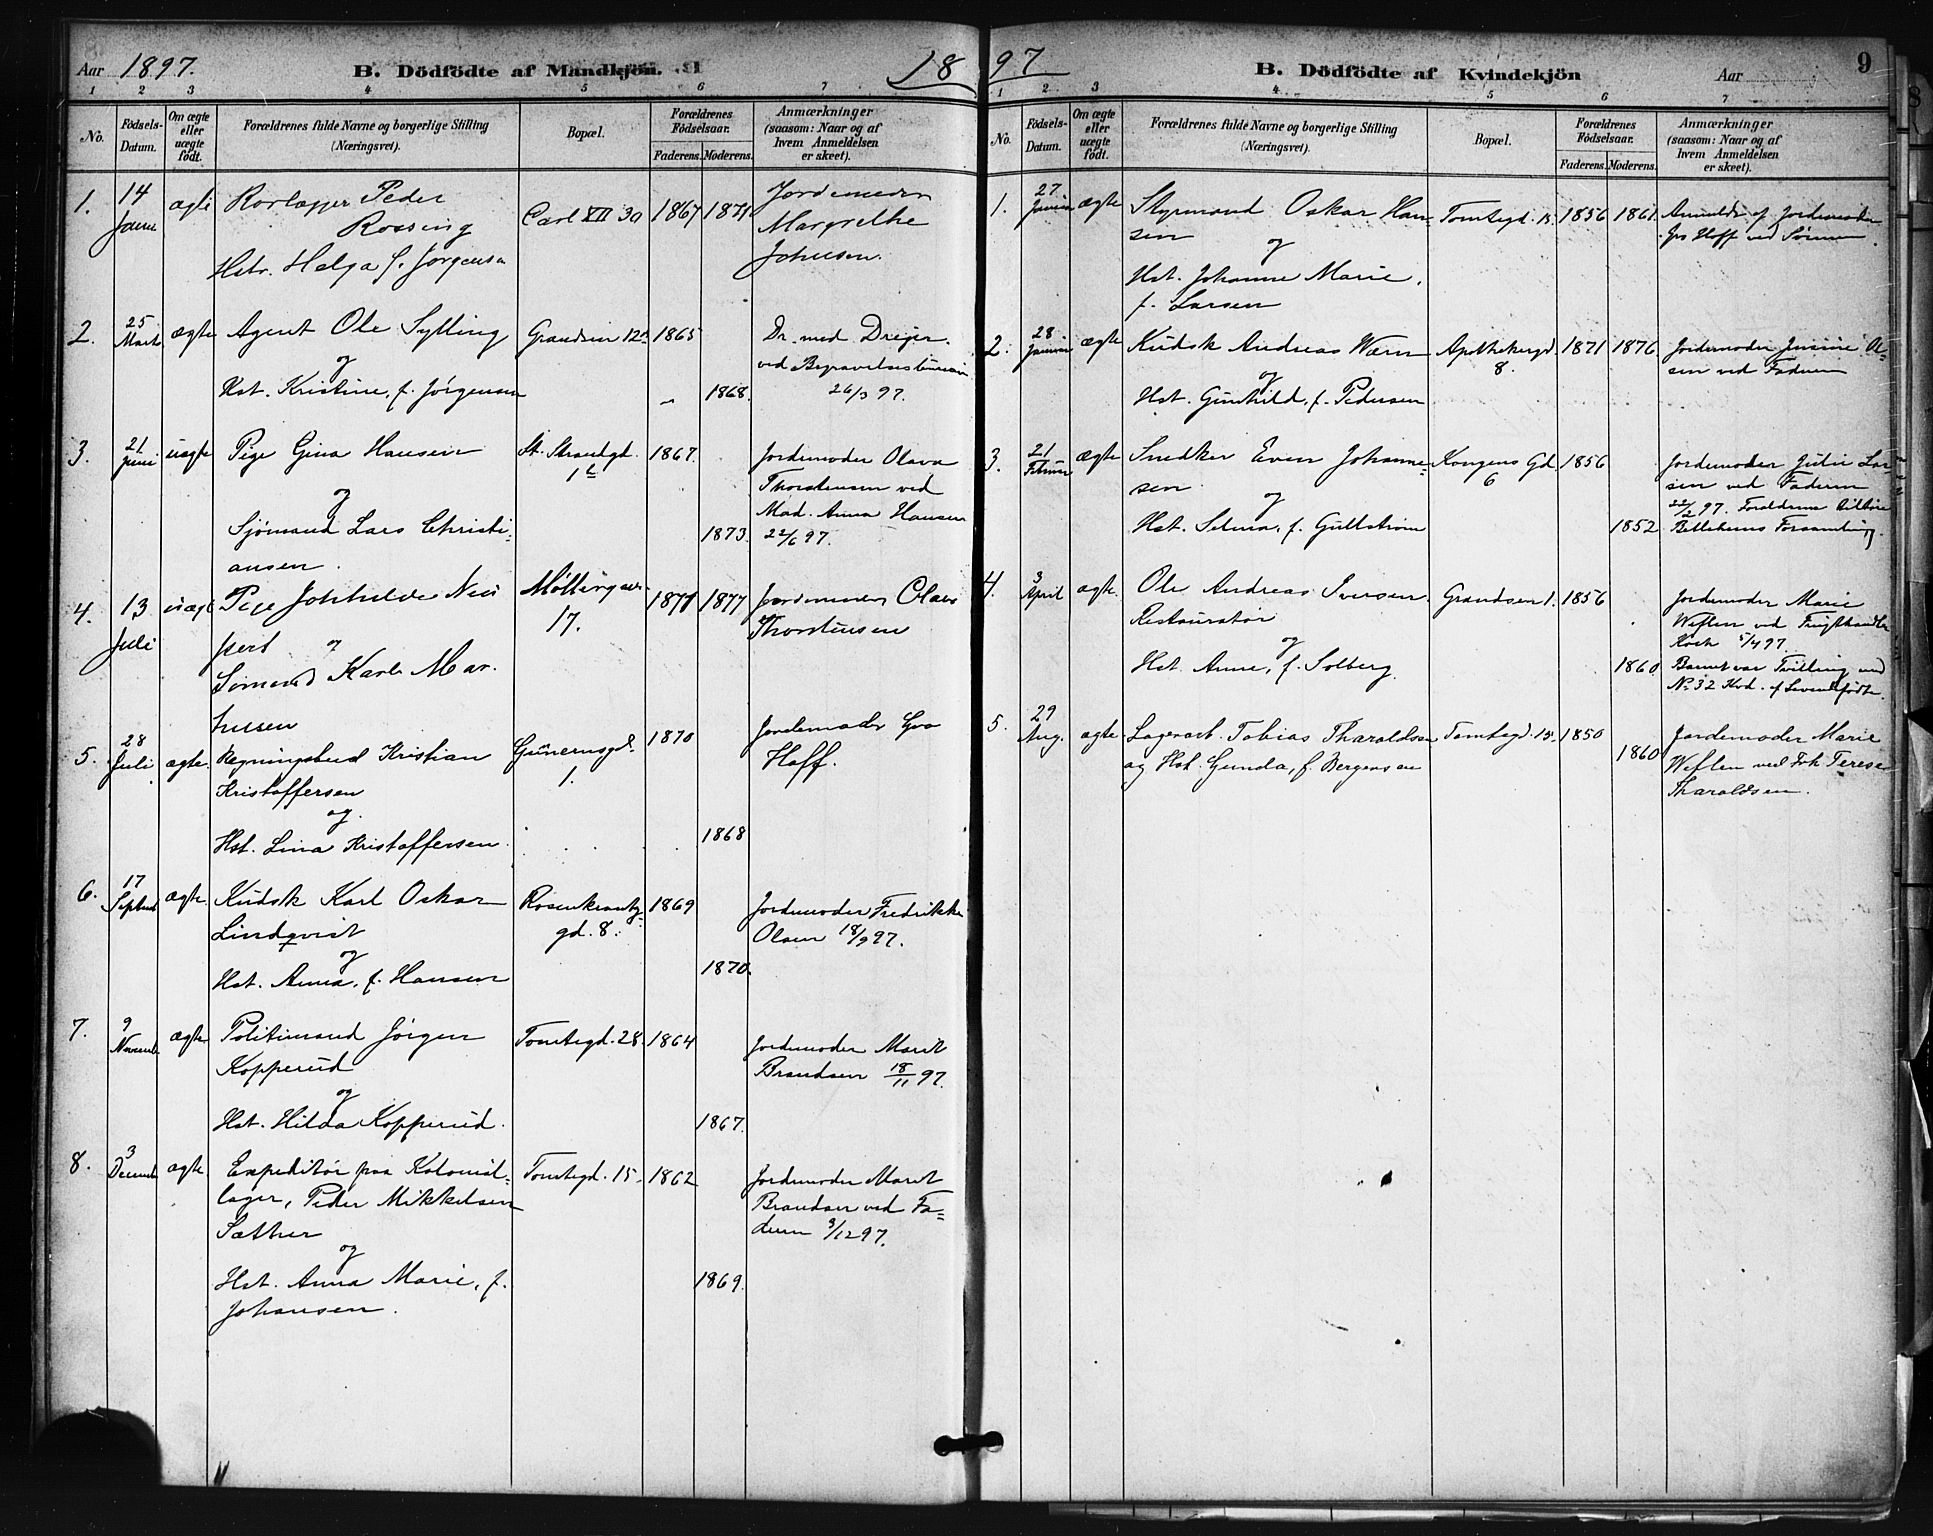 Aar 1897. B. Dödfödte af Mandkjön. 18
1 2 3 4 5 6 7
No. Födsels-Datum. Om ægte eller uægte födt. Forældrenes fulde Navne og borgerlige Stilling (Næringsvei). Bopæl. Forældrenes Födselsaar. Faderens. Moderens. Anmærkninger (saasom: Naar og af hvem Anmeldelsen er skeet).
1. 14 ægte Rørlægger Peder Carl XII 30 1867 1871 Jordemoder
Rossing Margrethe
Hstr. Helga f. Jørgensen Johnsen.
2. 25 Marts ægte Agent Ole Sylling Grændsen 12 1865 Dr. med Dreyer
og ved Begravelsesbureau
Hst. Kristine, f. Jørgensen 1868. 26/3 97.
3. 21 Juni uægte Pige Gina Hansen St. Strandgd. 1867. Jordemoder Olava
og Thorstensen ved
Sjömand Lars Christi- 1873. Mad. Anna Hansen
ansen. 22/6 97.
4. 13 Juli Pige 17. 1877 Jordemoder Olava
og Thorstensen
Sømand Karl Mar-
5. 28 Juli ægte. Regningsbud Kristian 1. 1870 Jordemoder Gro
Kristoffersen Hoff.
og
Hst. Lina Kristoffersen. 1868
6. 17 Septemb ægte. Kudsk Karl Oskar Rosenkrantz- 1869 Jordemoder Fredrikke
Lindqvist gd. 8. Olsen 18/9 97.
og
Hst. Anna, f. Hansen 1870.
7. 9 Novemb. ægte Politimand Jörgen Tomtegd. 28. 1864 Jordemoder Marit
Kopperud Brandsen 18/11 97.
og
Hst. Hilda Kopperud. 1867.
8. 3 Decemb. ægte Expeditör paa Kolonial- Tomtegd. 15. 1862 Jordemoder Marit
lager, Peder Mikkelsen Brandsen ved Fa-
Sæther deren 3/12 97.
og
Hst. Anna Marie, f. 1869.
Johansen.
97 B. Dödfödte af Kvindekjön Aar 9
1 2 3 4 5 6 7
No. Födsels-Datum. Om ægte eller uægte födt. Forældrenes fulde Navne og borgerlige Stilling (Næringsvei). Bopæl. Forældrenes Födselsaar. Faderens. Moderens. Anmærkninger (saasom: Naar og af hvem Anmeldelsen er skeet).
1. 27 Januar ægte Styrmand Oskar Han- Tomtegd. 1856 1861. Anmeldt af Jordemoder
sen Hoff ved
og
Hst. Johanne Marie,
f. Larsen
2. 28 Januar ægte Kudsk Andreas Wærn Apothekergd. 1871 1876. Jordemoder Jensine Ol-
og 8. sen ved Faderen
Hst. Gunhild, f. Pedersen
3. 21 Februar ægte Snedker Even Johanne- Kongens Gd. 1856 Jordemoder Julie Lar-
sen 6 sen ved Faderen
og 22/2 97. Forældrene tilhöre
Hst. Selma, f. Gullström 1852 Betlehems Forsamling.
4. 3 April ægte. Ole Andreas Iversen Grændsen 1. 1856 Jordemoder Marie
Restauratör Weflen ved Frugthandler
og Koch 5/4 97.
Hst. Anne, f. Solberg. 1860. Barnet var Tvilling med
No 32 Kvd. af Levendefödte
5. 29 Aug. ægte Lagerarb. Tobias Tharaldsen Tomtegd. 1850 Jordemoder Marie
og Hst. Gunda, f. Bergersen 1860 Weflen ved Frk Terese
Tharaldsen.